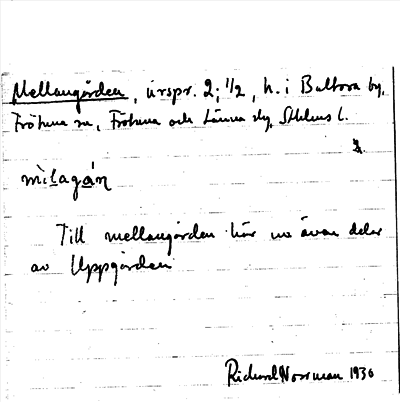 Mellangården, urspr. 2; 1/2, h. i Baltora by,
Frötuna sn, Frötuna och Länna slg, Sthlms l.
mìlagán
Till mellangården hör nu även delar
av Uppgården
Richard Norrman 1930